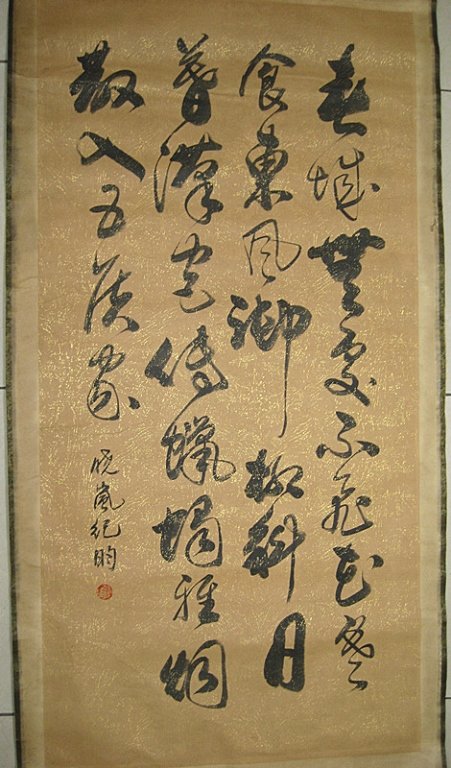 春城無處不飛花寒
食東風御柳斜日
暮漢宮傳蠟燭輕烟
散入五侯家
曉嵐紀昀